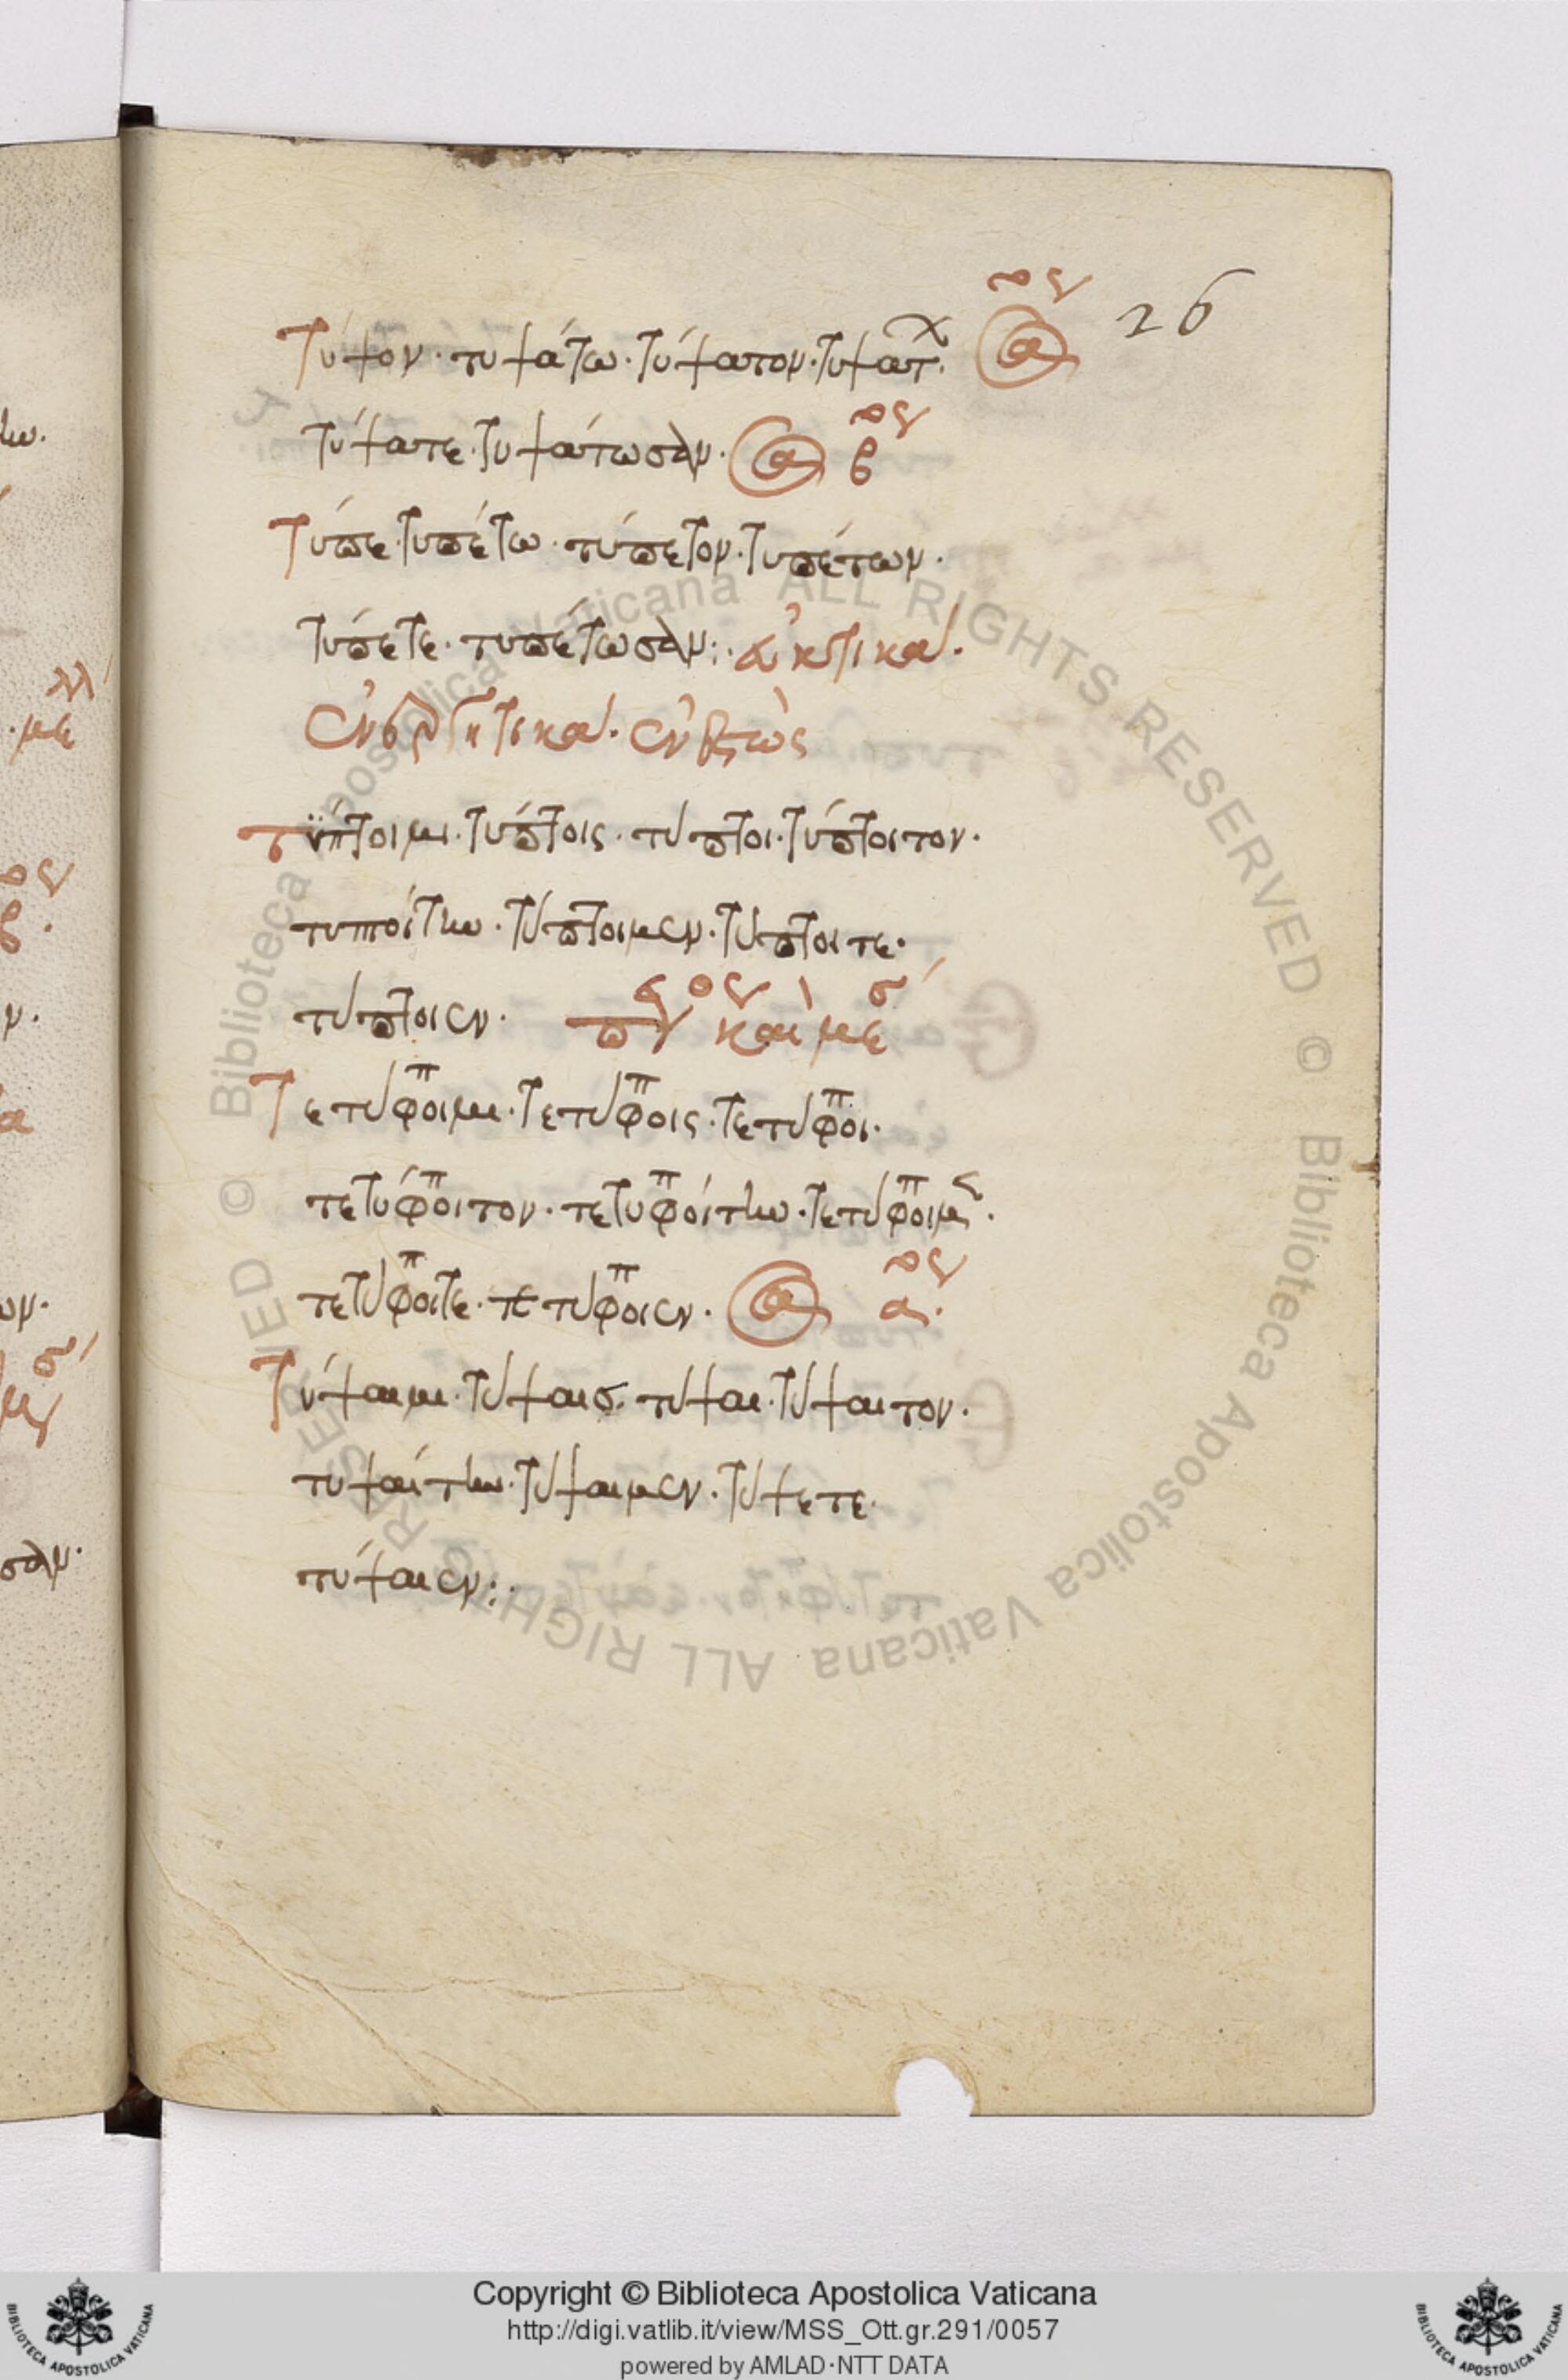 26
Τύψον· τυψάτω· τύψατον· τυψάτ.
τύψατε· τυψάτωσαν· β
Τύπε· τυπέτω· τύπετον· τυπέτων·
τύπετε· τυπέτωσαν:· εὐκτικά·
Τύπτοιμι· τύπτοις· τύπτοι· τύπτοιτον·
τυπτοίτην· τύπτοιμεν· τύπτοιτε·
τύπτοιεν· καὶ
Τετύφοιμι· τετύφοις· τετύφοι·
τετύφοιτον· τετυφοίτην· τετύφοιμ·
τετύφοιτε· τετύφοιεν· α·
Τύψαιμι· τύψαισ· τύψαι· τύψαιτον·
τυψαίτην· τύψαιμεν· τύψετε·
τύψαιεν:·
Biblioteca Apostolica Vaticana ALL RIGHTS RESERVED ©
Copyright © Biblioteca Apostolica Vaticana
http://digi.vatlib.it/view/MSS_Ott.gr.291/0057
powered by AMLAD·NTT DATA
BIBLIOTECA APOSTOLICA VATICANA
BIBLIOTECA APOSTOLICA VATICANA